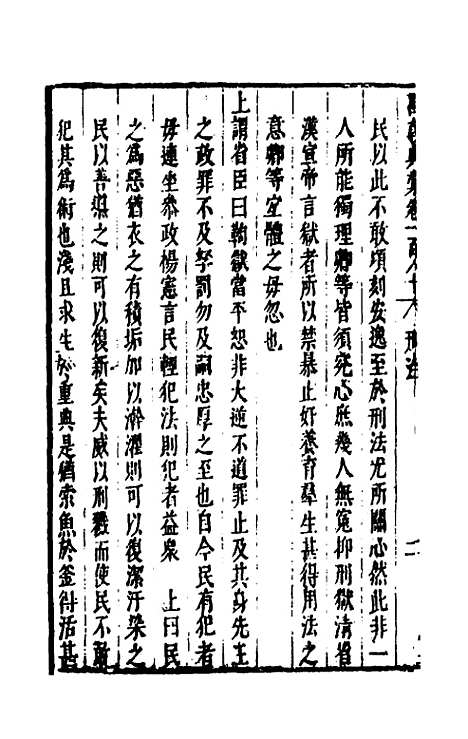 典彙卷一百八十 刑法 二
民以此不敢頃刻安逸至於刑法尤所關心然此非一
人所能獨理卿等皆須究心庶幾人無冤抑刑獄清省
漢宣帝言獄者所以禁暴止奸養育羣生甚得用法之
意卿等宜體之毋忽也
上謂省臣曰鞫獄當平恕非大逆不道罪止及其身先王
之政罪不及孥罰勿及嗣忠厚之至也自今民有犯者
毋連坐叅政楊憲言民輕犯法則犯者益衆 上曰民
之爲惡猶衣之有積垢加以澣濯則可以復潔汙染之
民以善導之則可以復新矣夫威以刑戮而使民不敢
犯其爲術也淺且求生於重典是猶索魚於釜得活甚